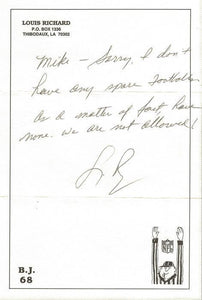 LOUIS RICHARD
P.O. BOX 1336
THIBODAUX, LA 70302
Mike – Sorry, I don't
have any spare footballs
as a matter of fact have
none. We are not allowed!
B.J.
68